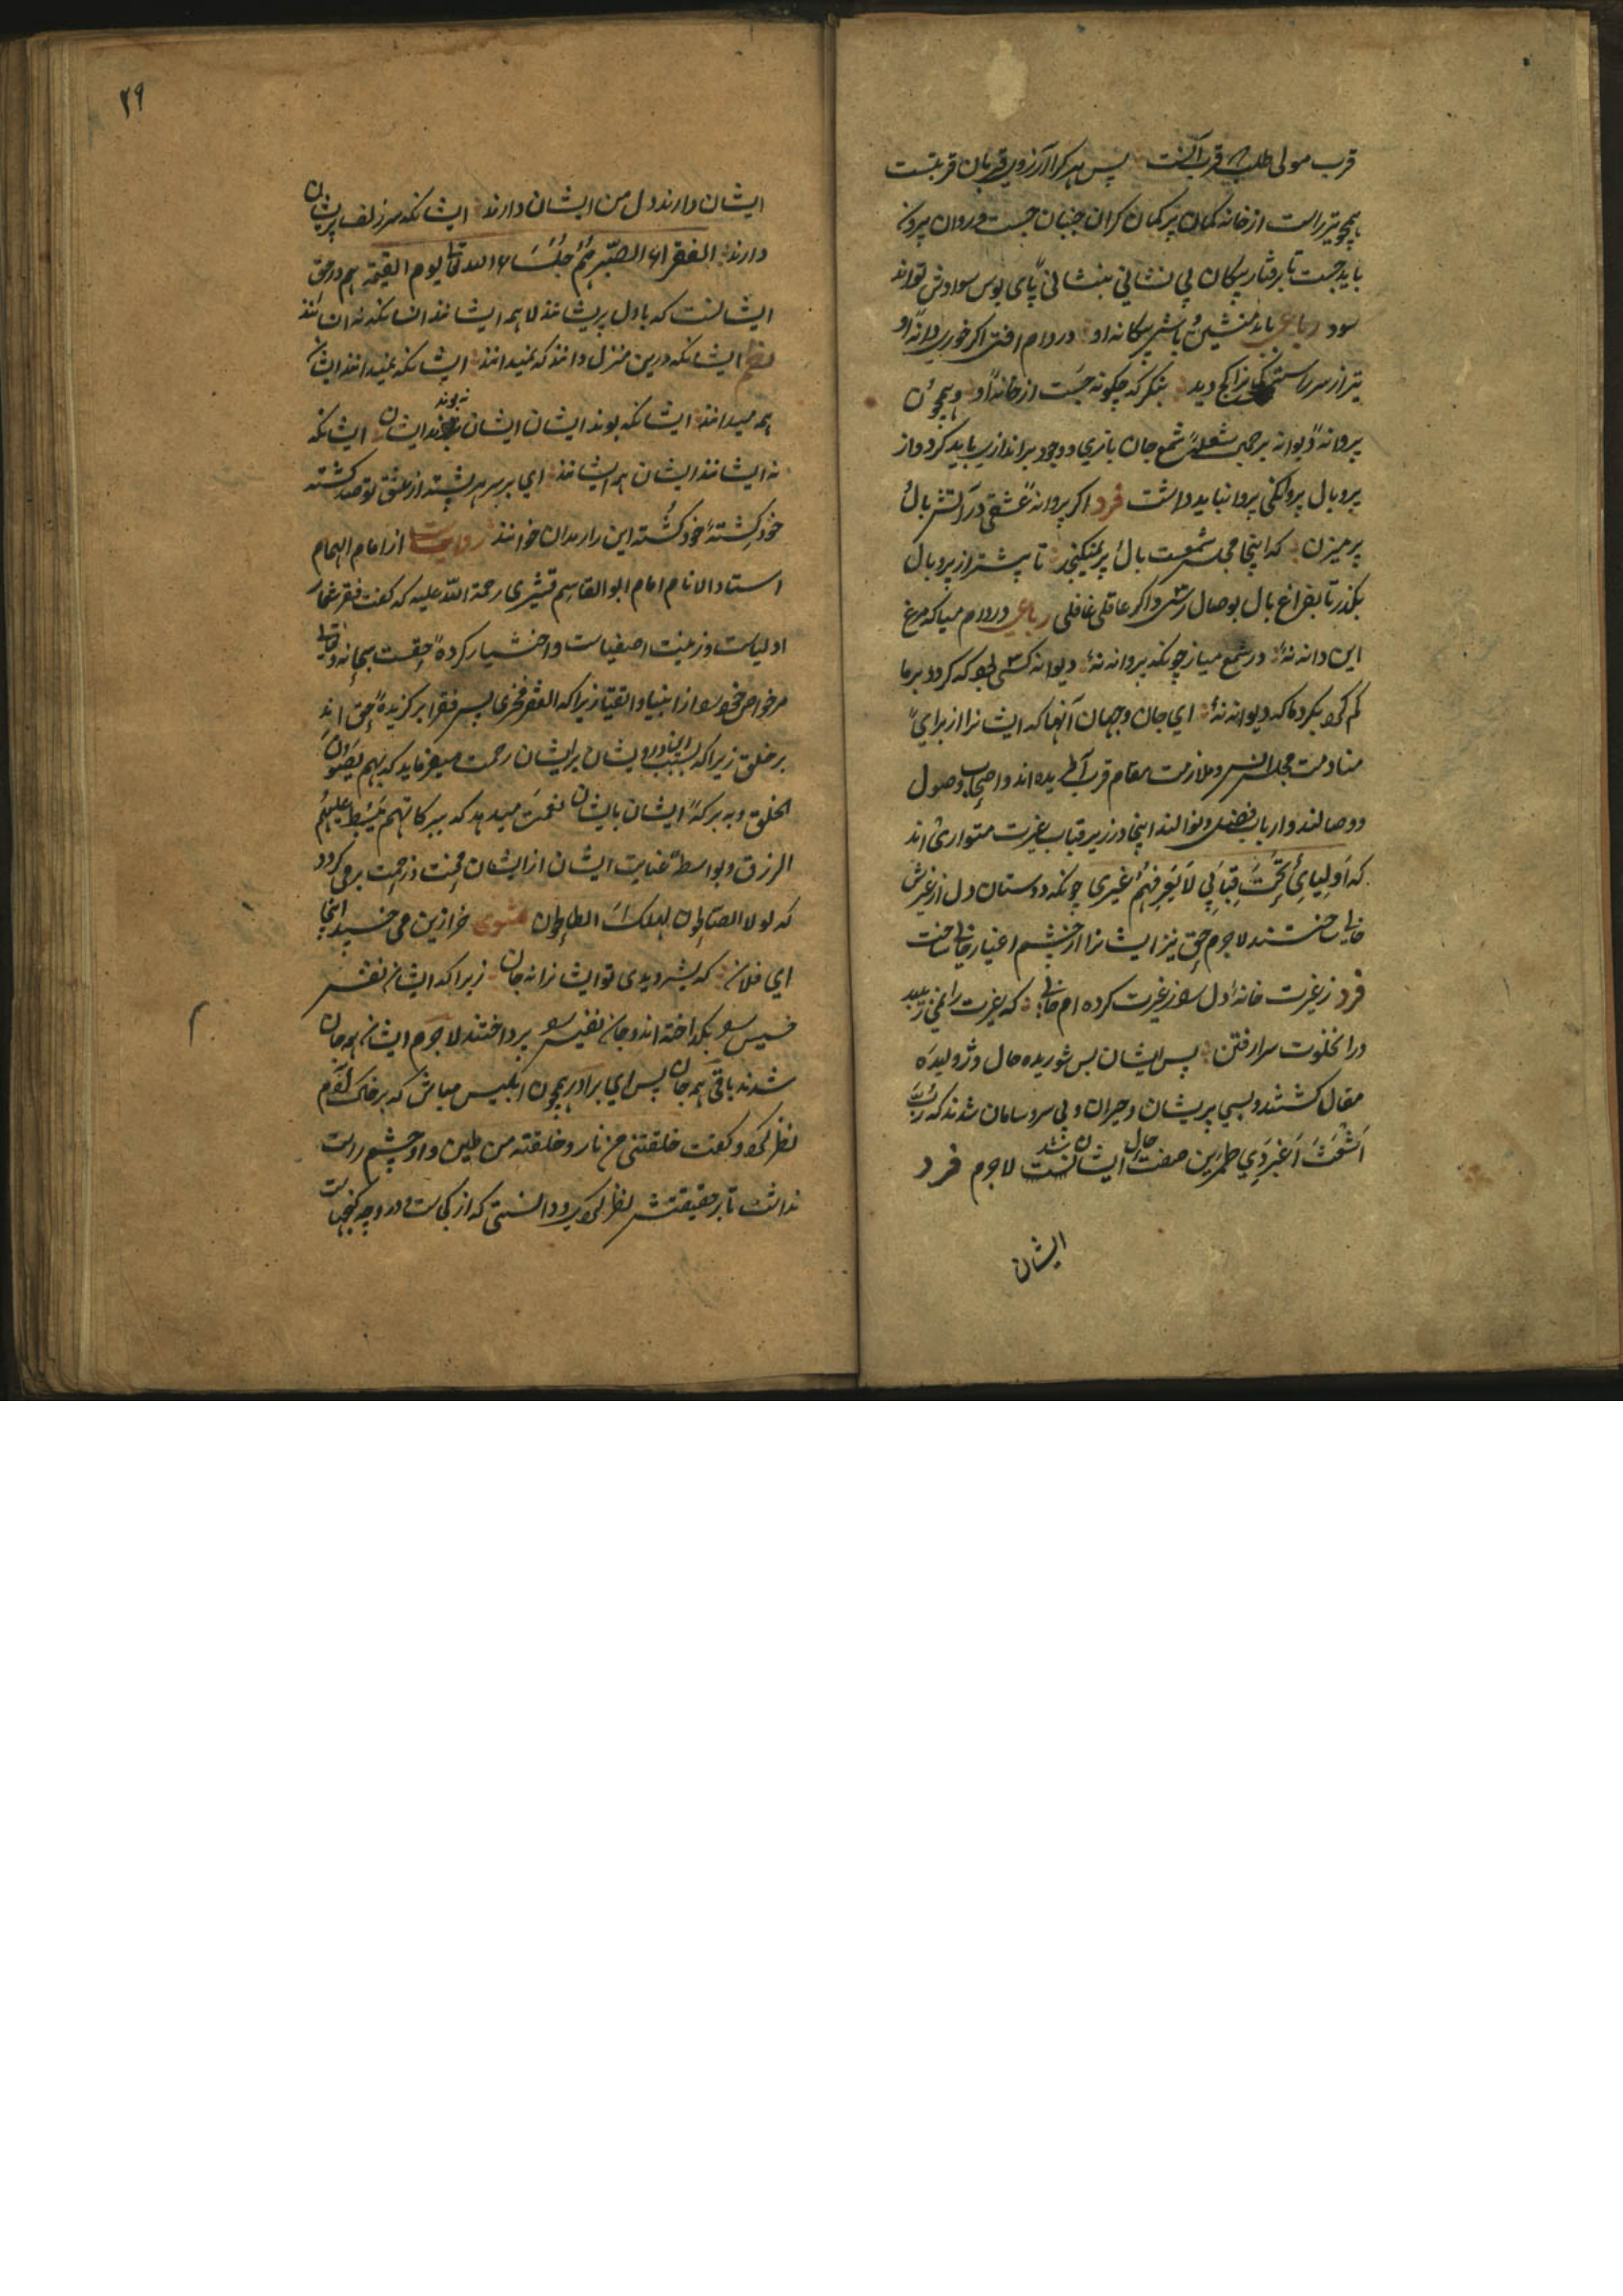 قرب مولی طلب قرب آنست پس هر کرا آرزوی قربان قربتست
همچو تیر راست از خانه کمان پر کمان کران چنان جست و روان بیرون
باید جست تا برفتار پیکان بی نشانی بنشانی پای بوس سوادش تواند
بود رباعی با بد منشین و باش بیکانه او در دام افتی اگر خوری دانه او
تیر از سر راستی کمانرا کج دید بنگر که چگونه جست از خانه او و همچون
پروانه دیوانه بر شعله شمع جان بازی و وجود براندازی باید کرد و از
پر و بال پروانکی پروا نباید داشت فرد اکر پروانه عشقی در آتش بال
پر میزن که اینجا مجلس شمعست بال پر نمیکنجد تا پیشتر از پر و بال
بگذر تا بفراغ بال بوصال رسی و اکر عاقلی غافلی رباعی در دام میا که مرغ
این دانه نه در شمع میاز چونکه پروانه نه دیوانه کسی بود که کردد بر ما
کم کرد بکرد ما که دیوانه نه ای جان و جهان آنها که ایشانرا از برای
منادمت مجلس انس و ملازمت مقام قرب آفریده اند و اصحاب وصول
و وصالند و ارباب فضل و نوالند اینجا در زیر قباب غیرت متواری اند
که اَولیائی تَحتَ قِبابی لا یَعرِفهُم غیری چونکه دوستان دل از غیرش
خالی ساختند لاجرم حق نیز ایشانرا از چشم اغیار خالی ساخت
فرد ز غیرت خانه دل را ز غیرت کرده ام خالی که غیرت را نمی زیبد
در این خلوت سرا رفتن پس ایشان بس شوریده حال و ژولیده
مقال کشتند و بسی پریشان و حیران و بی سر و سامان شدند که رُبَّ
اَشعَثَ اَغبَرَ ذی طمرین صفت حال ایشان شد لاجرم فرد
ایشان
۲۹
ایشان دارند دل من ایشان دارند ایشانکه سر زلف پریشان
دارند الفقراء الصبر هم جُلَسَاء الله تعالی یوم القیمة هم در حق
ایشانست که باول پریشانند لا همه ایشانند انسانکه نه انسانند
نظم ایشانکه درین منزل دانند که نمیدانند ایشانکه نمیدانند ایشان
همه میدانند ایشانکه بوند ایشان ایشان نبوند ایشان ایشانکه
نه ایشانند ایشان همه ایشانند ای بر سر هر پشته از عشق تو صد کشته
خود کِشتهٔ خود کُشته این را مردان خوانند روایت از امام الهمام
استاد الانام امام ابو القاسم قشیری رحمة الله علیه که گفت فقر شعار
اولیاست و زینت اصفیاست و اختیار کرده حقست سبحانه و تعالی
مر خواص خود را از انبیا و اتقیا زیرا که الفقر فخری پس فقرا برگزیده حق اند
بر خلق زیرا که بسبب این درویشان بر ایشان رحمت میفرماید که بهم یصون
الخلق و به برکهٔ ایشان بایشان نعمت میدهد که ببرکاتهم یَبسُط علیهم
الرزق و بواسطهٔ عنایت ایشان از ایشان محنت و زحمت بر می کردد
که لولا الصالحون لهلک الطالحون مثنوی خر ازین می خسپد اینجا
ای فلان که بشر دیدی تو ایشانرا نه جان زیرا که ایشان نفس
خسیس را بگداخته اند و جان نفیس را پرداختند لاجرم ایشان همه جان
شدند باقی همه جان پس ای برادر همچون ابلیس مباش که بر خاک آدم
نظر کرد و گفت خلقتنی من نار و خلقته من طین و او چشم راست
نداشت تا بر حقیقتش نظر کردی و دانستی که از کجاست و در وچه گنجهاست